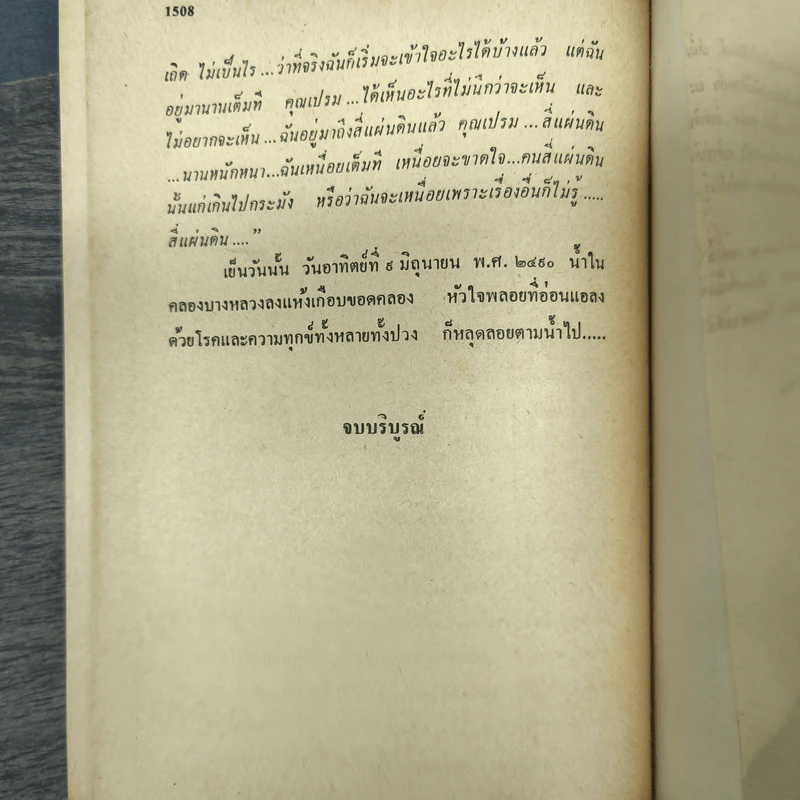 1508
เถิด ไม่เป็นไร ...ว่าที่จริงฉันก็เริ่มจะเข้าใจอะไรได้บ้างแล้ว แต่ฉัน
อยู่มานานเต็มที คุณเปรม ...ได้เห็นอะไรที่ไม่นึกว่าจะเห็น และ
ไม่อยากจะเห็น ...ฉันอยู่มาถึงสี่แผ่นดินแล้ว คุณเปรม ...สี่แผ่นดิน
...นานหนักหนา...ฉันเหนื่อยเต็มที เหนื่อยจะขาดใจ...คนสี่แผ่นดิน
นั้นแก่เกินไปกระมัง หรือว่าฉันจะเหนื่อยเพราะเรื่องอื่นก็ไม่รู้.....
สี่แผ่นดิน....”
เย็นวันนั้น วันอาทิตย์ที่ ๙ มิถุนายน พ.ศ. ๒๔๙๐ น้ำใน
คลองบางหลวงลงแห้งเกือบขอดคลอง หัวใจพลอยที่อ่อนแอลง
ด้วยโรคและความทุกข์ทั้งหลายทั้งปวง ก็หลุดลอยตามน้ำไป.....
จบบริบูรณ์